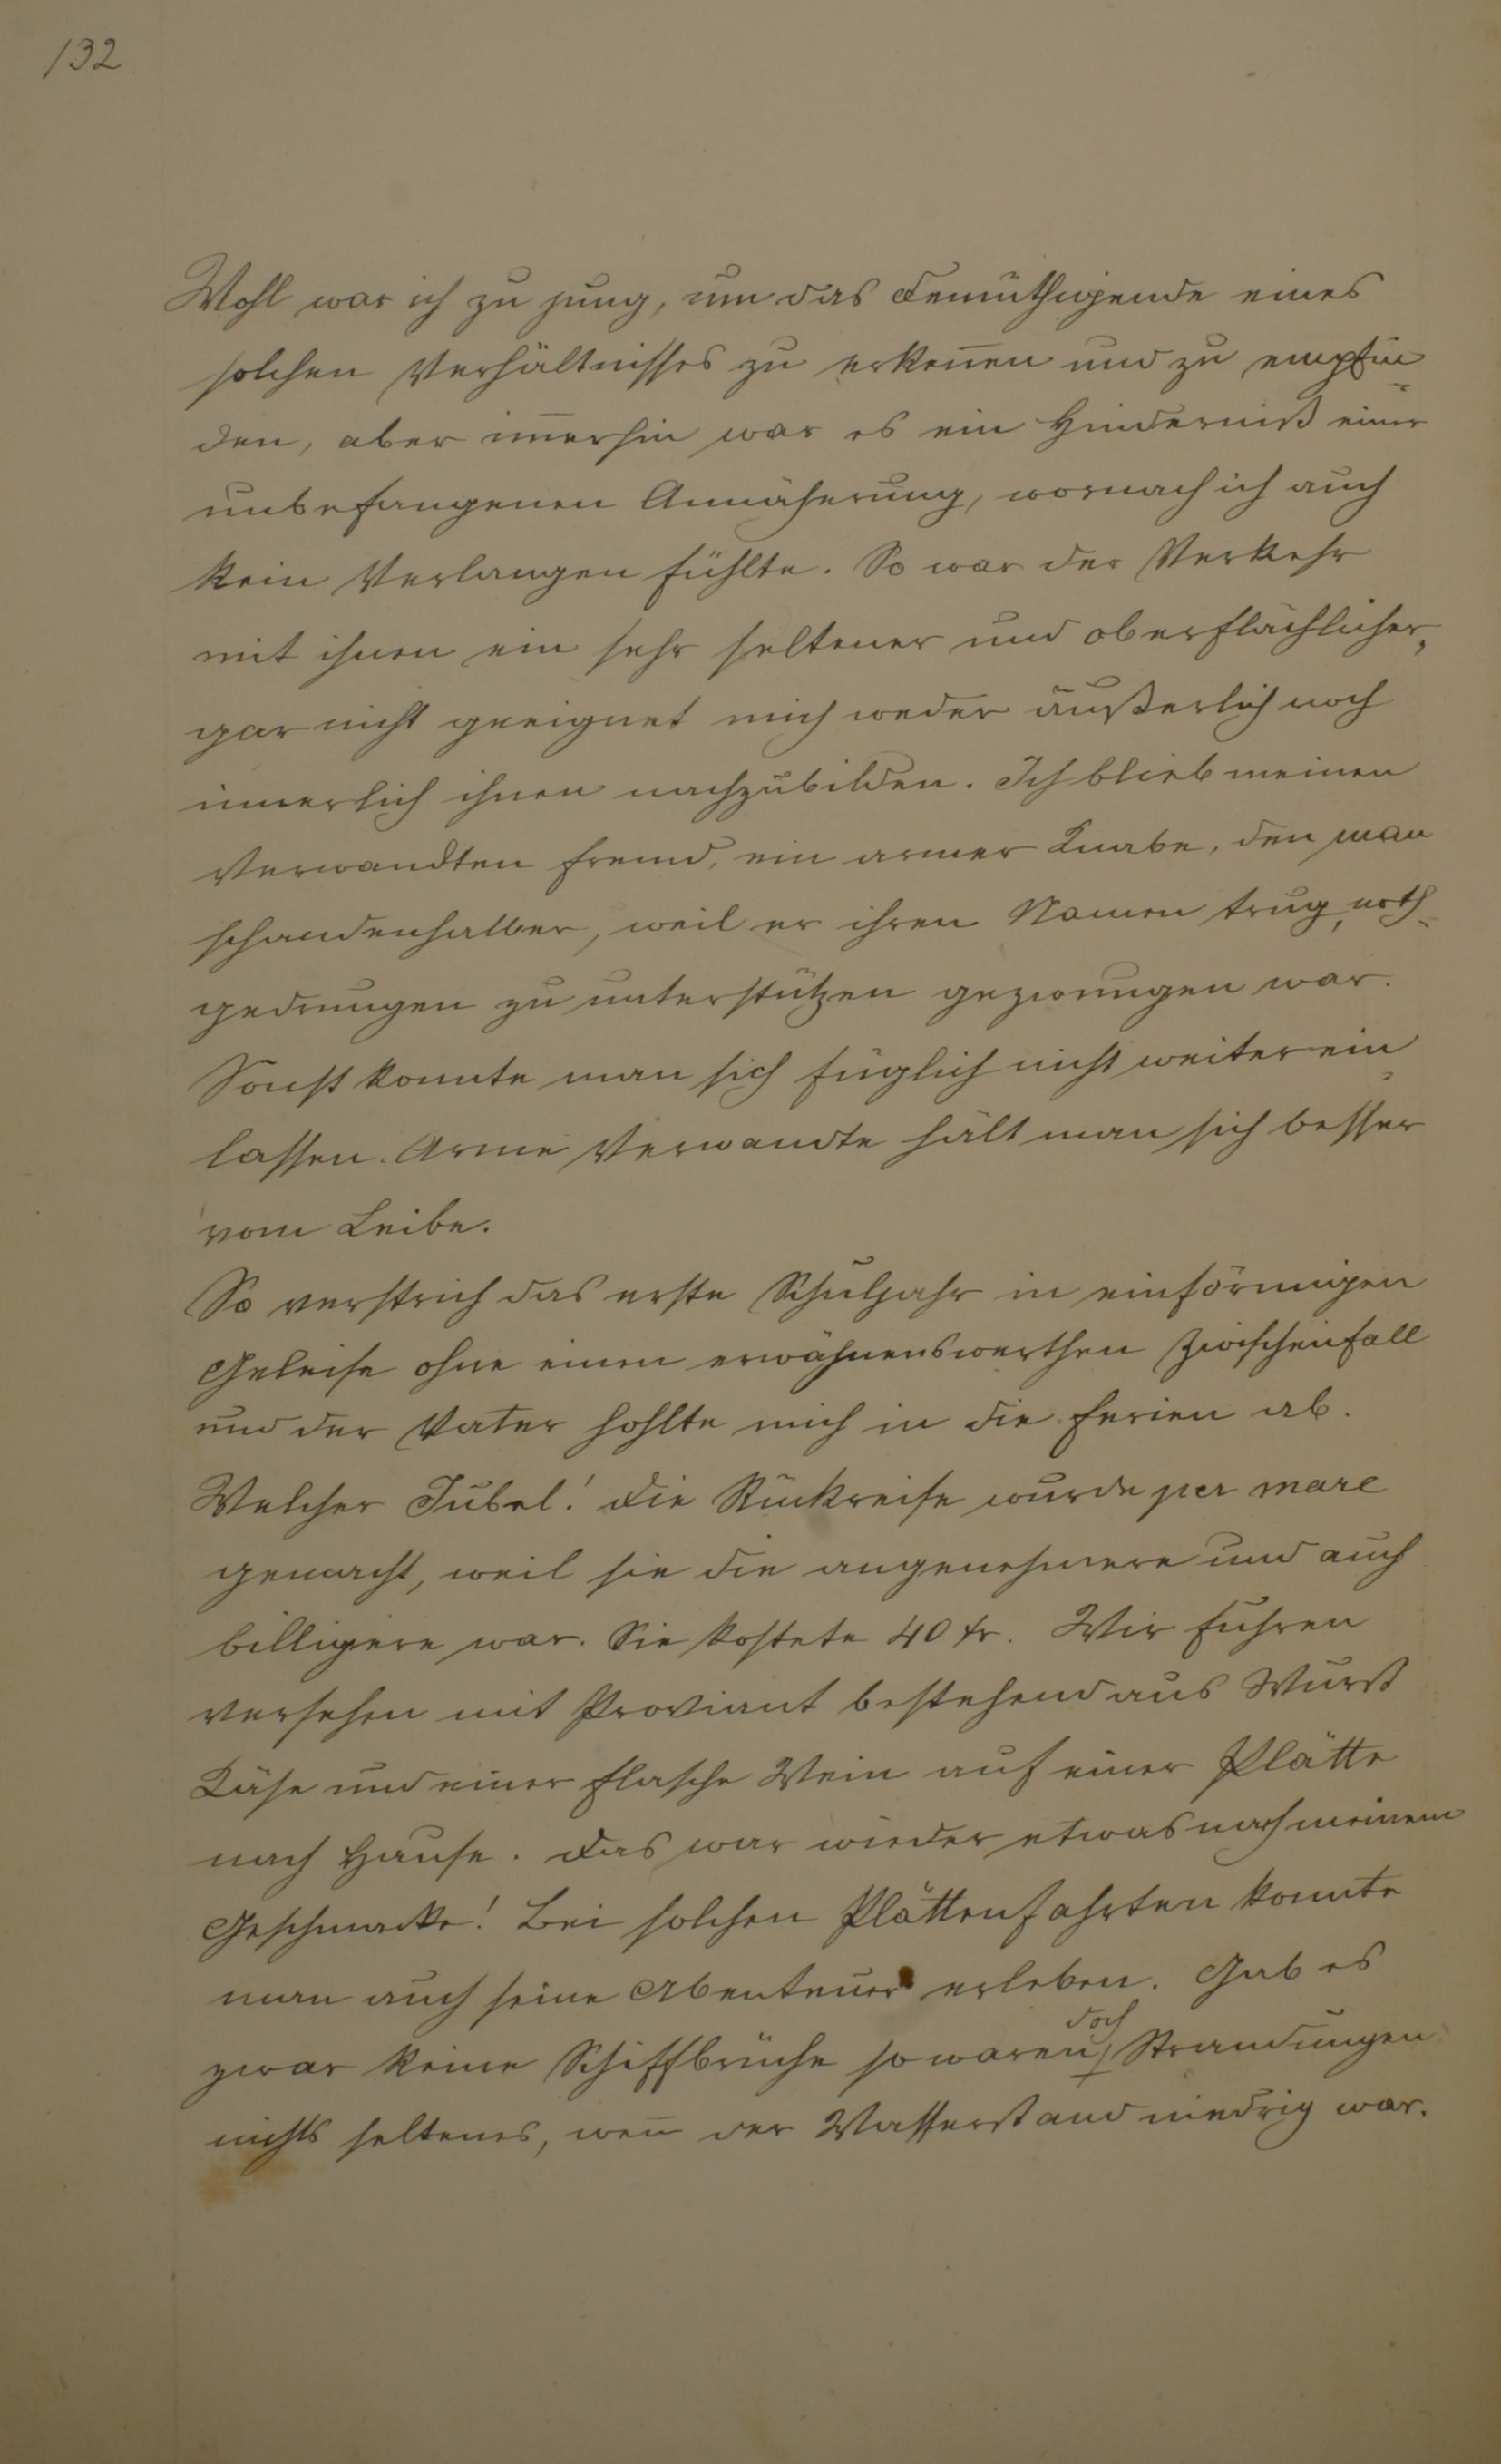 132
Wohl war ich zu jung, um das Demüthigende eines
solchen Verhältnisses zu erken̄en und zu empfin-
den, aber im̄erhin war es ein Hinderniß einer
unbefangenen Annäherung, wornach ich auch
kein Verlangen fühlte. So war der Verkehr
mit ihnen ein sehr seltener und oberflächlicher,
gar nicht geeignet mich weder äußerlich noch
innerlich ihnen nachzubilden. Ich blieb meinen
Verwandten fremd, ein armer Knabe, den man
schandenhalber, weil er ihren Namen trug, noth-
gedrungen zu unterstützen gezwungen war.
Sonst konnte man sich füglich nicht weiter ein-
lassen. Arme Verwandte hält man sich besser
vom Leibe.
So verstrich das erste Schuljahr in einförmigen
Geleise ohne einen erwähnenswerthen Zwischenfall
und der Vater hohlte mich in die Ferien ab.
Welcher Jubel! Die Rückreise wurde per mare
gemacht, weil sie die angenehmere und auch
billigere war. Sie kostete 40 kr. Wir fuhren
versehen mit Proviant bestehend aus Wurst
Käse und einer Flasche Wein auf einer Plätte
nach Hause. Das war wieder etwas nach meinem
Geschmacke! Bei solchen Plättenfahrten konnte
man auch seine Abenteuer erleben. Gab es
zwar keine Schiffbrüche so waren doch Strandungen
nichts seltenes, wen̄ der Wasserstand niedrig war.